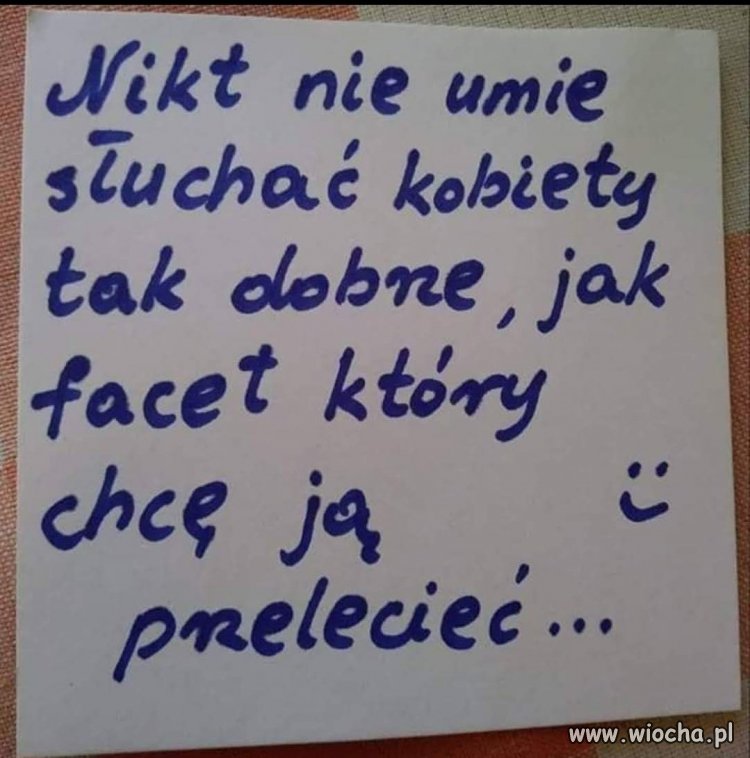 Nikt nie umie
słuchać kobiety
tak dobrze, jak
facet który
chcę ją :)
przelecieć...
www.wiocha.pl